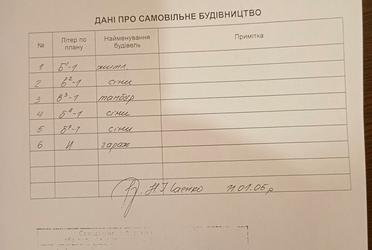 ДАНІ ПРО САМОВІЛЬНЕ БУДІВНИЦТВО
№ Літер по плану Найменування будівель Примітка
1 б¹-1 житл.
2 б²-1 сіни
3 б³-1 тамбур
4 б⁴-1 сіни
5 сіни
6 И гараж
11.01.06 р